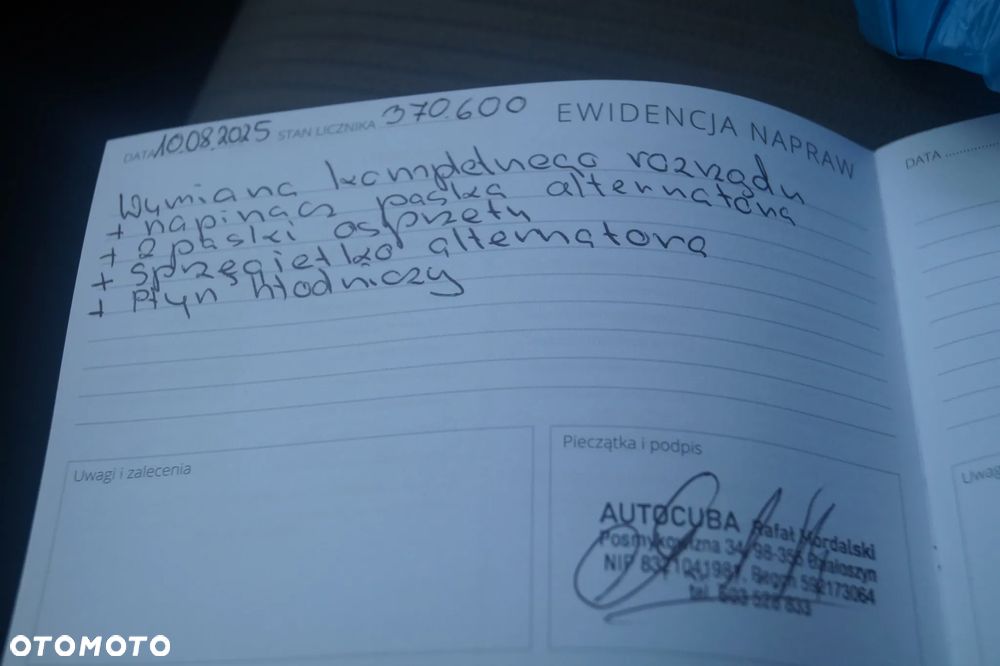 DATA 10.08.2025 STAN LICZNIKA 370.600 EWIDENCJA NAPRAW
Wymiana kompletnego rozrządu
+ napinacz paska alternatora
+ 2 paski osprzętu
+ Sprzęgiełko alternatora
+ Płyn hłodniczy
Uwagi i zalecenia
Pieczątka i podpis
AUTOCUBA Rafał Mordalski
Posmykowizna 34, 98-355 Działoszyn
NIP Regon 592173064
tel.
DATA
Uwag
OTOMOTO